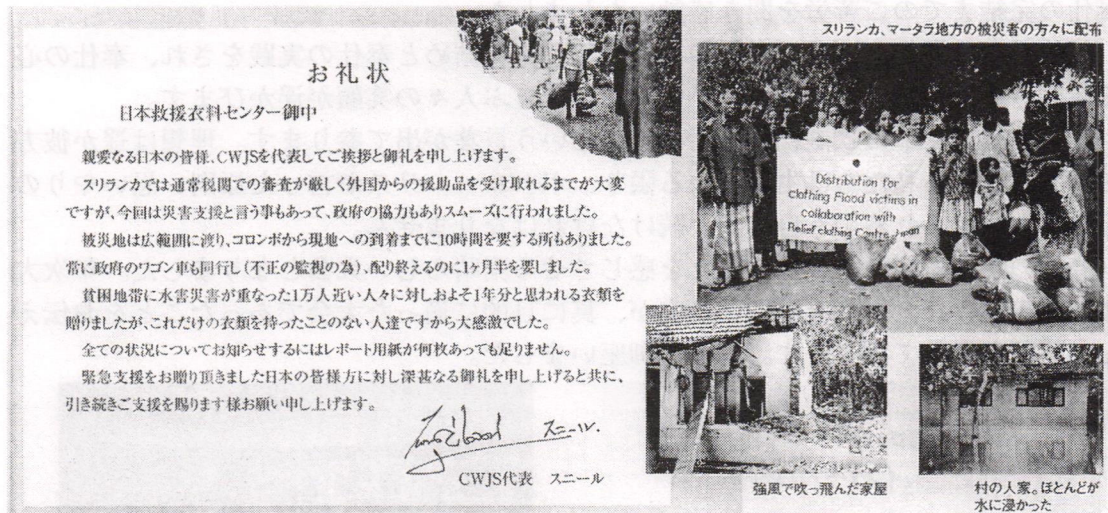 お礼状
日本救援衣料センター御中
親愛なる日本の皆様、CWJSを代表してご挨拶と御礼を申し上げます。
スリランカでは通常税関での審査が厳しく外国からの援助品を受け取れるまでが大変
ですが、今回は災害支援と言う事もあって、政府の協力もありスムーズに行われました。
被災地は広範囲に渡り、コロンボから現地への到着までに10時間を要する所もありました。
常に政府のワゴン車も同行し(不正の監視の為)、配り終えるのに1ヶ月半を要しました。
貧困地帯に水害災害が重なった1万人近い人々に対しおよそ1年分と思われる衣類を
贈りましたが、これだけの衣類を持ったことのない人達ですから大感激でした。
全ての状況についてお知らせするにはレポート用紙が何枚あっても足りません。
緊急支援をお贈り頂きました日本の皆様方に対し深甚なる御礼を申し上げると共に、
引き続きご支援を賜ります様お願い申し上げます。
スニール.
CWJS代表 スニール
スリランカ、マータラ地方の被災者の方々に配布
Distribution for
clothing Flood victims in
collaboration with
Relief clothing Centre Japan
強風で吹っ飛んだ家屋
村の人家。ほとんどが
水に浸かった